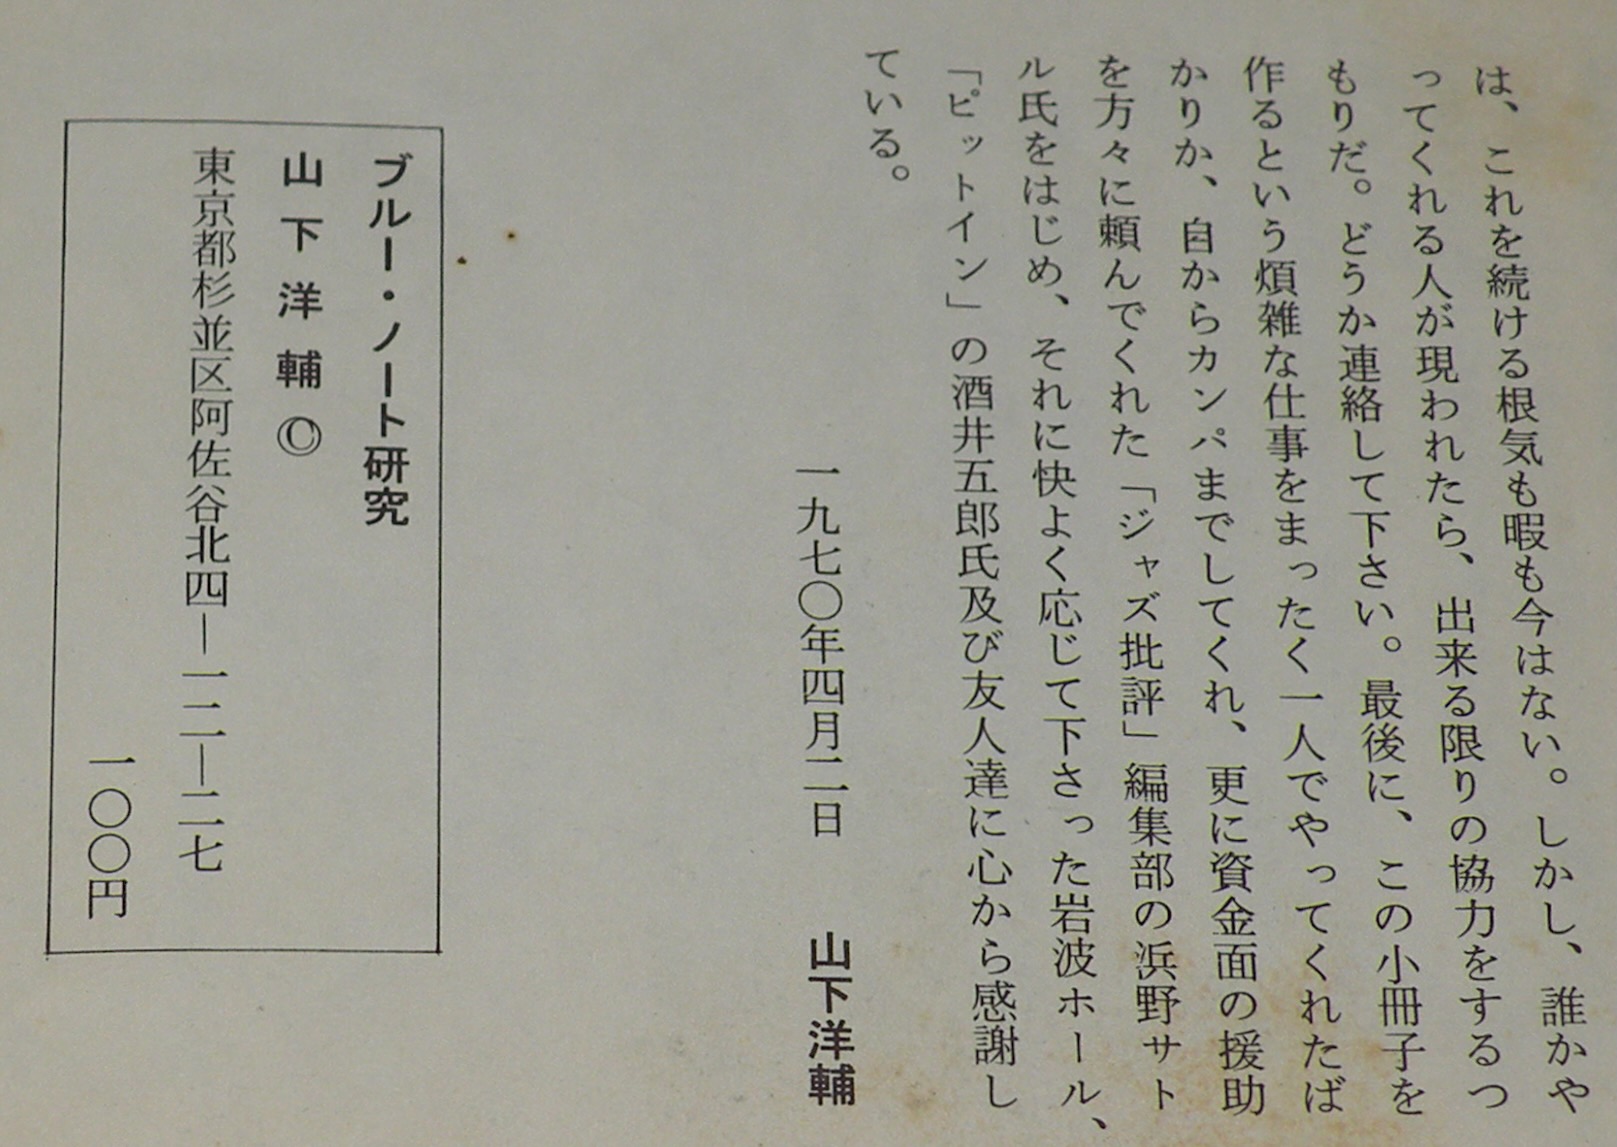 は、これを続ける根気も暇も今はない。しかし、誰かや
ってくれる人が現われたら、出来る限りの協力をするつ
もりだ。どうか連絡して下さい。最後に、この小冊子を
作るという煩雑な仕事をまったく一人でやってくれたば
かりか、自からカンパまでしてくれ、更に資金面の援助
を方々に頼んでくれた「ジャズ批評」編集部の浜野サト
ル氏をはじめ、それに快よく応じて下さった岩波ホール、
「ピットイン」の酒井五郎氏及び友人達に心から感謝し
ている。
一九七〇年四月二日　山下洋輔
ブルー・ノート研究
山下洋輔 ©
東京都杉並区阿佐谷北四―一二―二七
一〇〇円